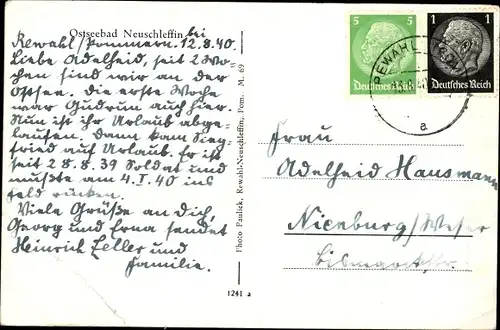 Ostseebad Neuschleffin bei
Rewahl/Pommern. 12.8.40.
Liebe Adelheid, seit 2 Wo-
chen sind wir an der
Ostsee. Die erste Woche
war Gudrun auch hier.
Nun ist ihr Urlaub abge-
laufen. Dann kam Sieg-
fried auf Urlaub. Er ist
seit 28.8.39 Soldat und
mußte am 4.I.40 ins
Feld rücken.
Viele Grüße an Dich,
Georg und Erna sendet
Heinrich Zeller und
Familie.
Photo Paulick, Rewahl/Neuschleffin, Pom. M. 69
1241 a
5 5
Deutsches Reich
1 1
Deutsches Reich
REWAHL
a
Frau
Adelheid Hausmann
Nienburg/Weser
Bismarckstr.